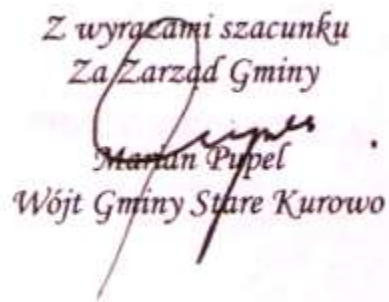 Z wyrazami szacunku
Za Zarząd Gminy
Marian Pupel
Wójt Gminy Stare Kurowo